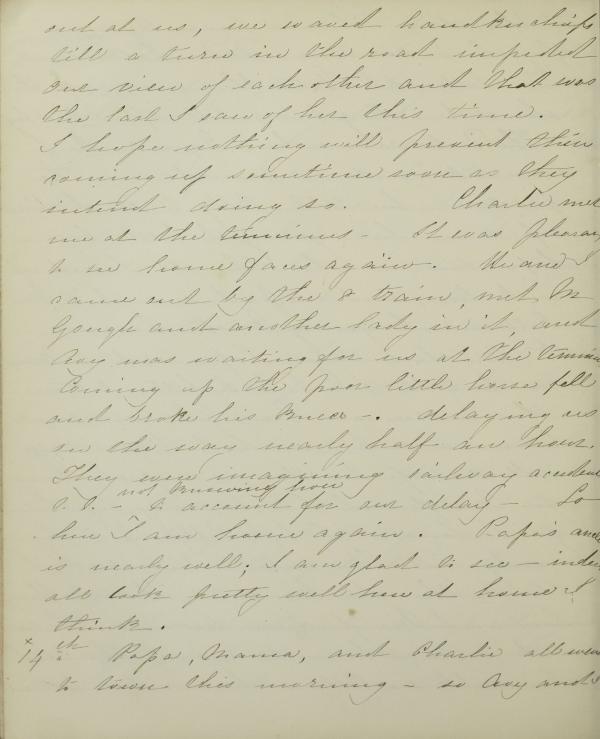 out at us, we waved handkerchiefs
till a turn in the road impeded
our view of each other and that was
the last I saw of her this time.
I hope nothing will prevent their
coming up sometime soon as they
intend doing so. Charlie met
me at the terminus - It was pleasant
to see home faces again. He and I
came out by the 8 train, met Mr
Gough and another lady in it, and
Avy was waiting for us at the terminus
Coming up the poor little horse fell
and broke his knees -. delaying us
on the way nearly half an hour.
They were imagining railway accidents
not knowing how
&. &. - to account for our delay - So
here I am home again. Papa's ancle
is nearly well; I am glad to see - indeed
all look pretty well here at home I
think.
x 14th Papa, Mama, and Charlie all went
to town this morning - so Avy and I